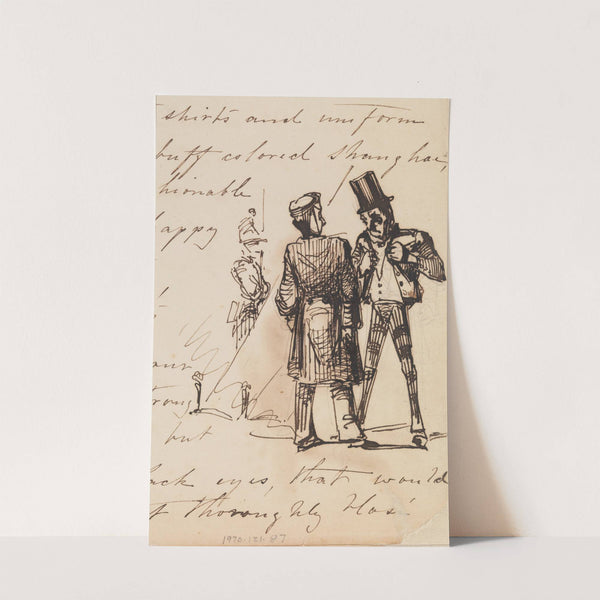 shirts and uniform
buff colored Shanghai,
hionable
happy
but
ck eyes, that would
t thoroughly
1970.121.87